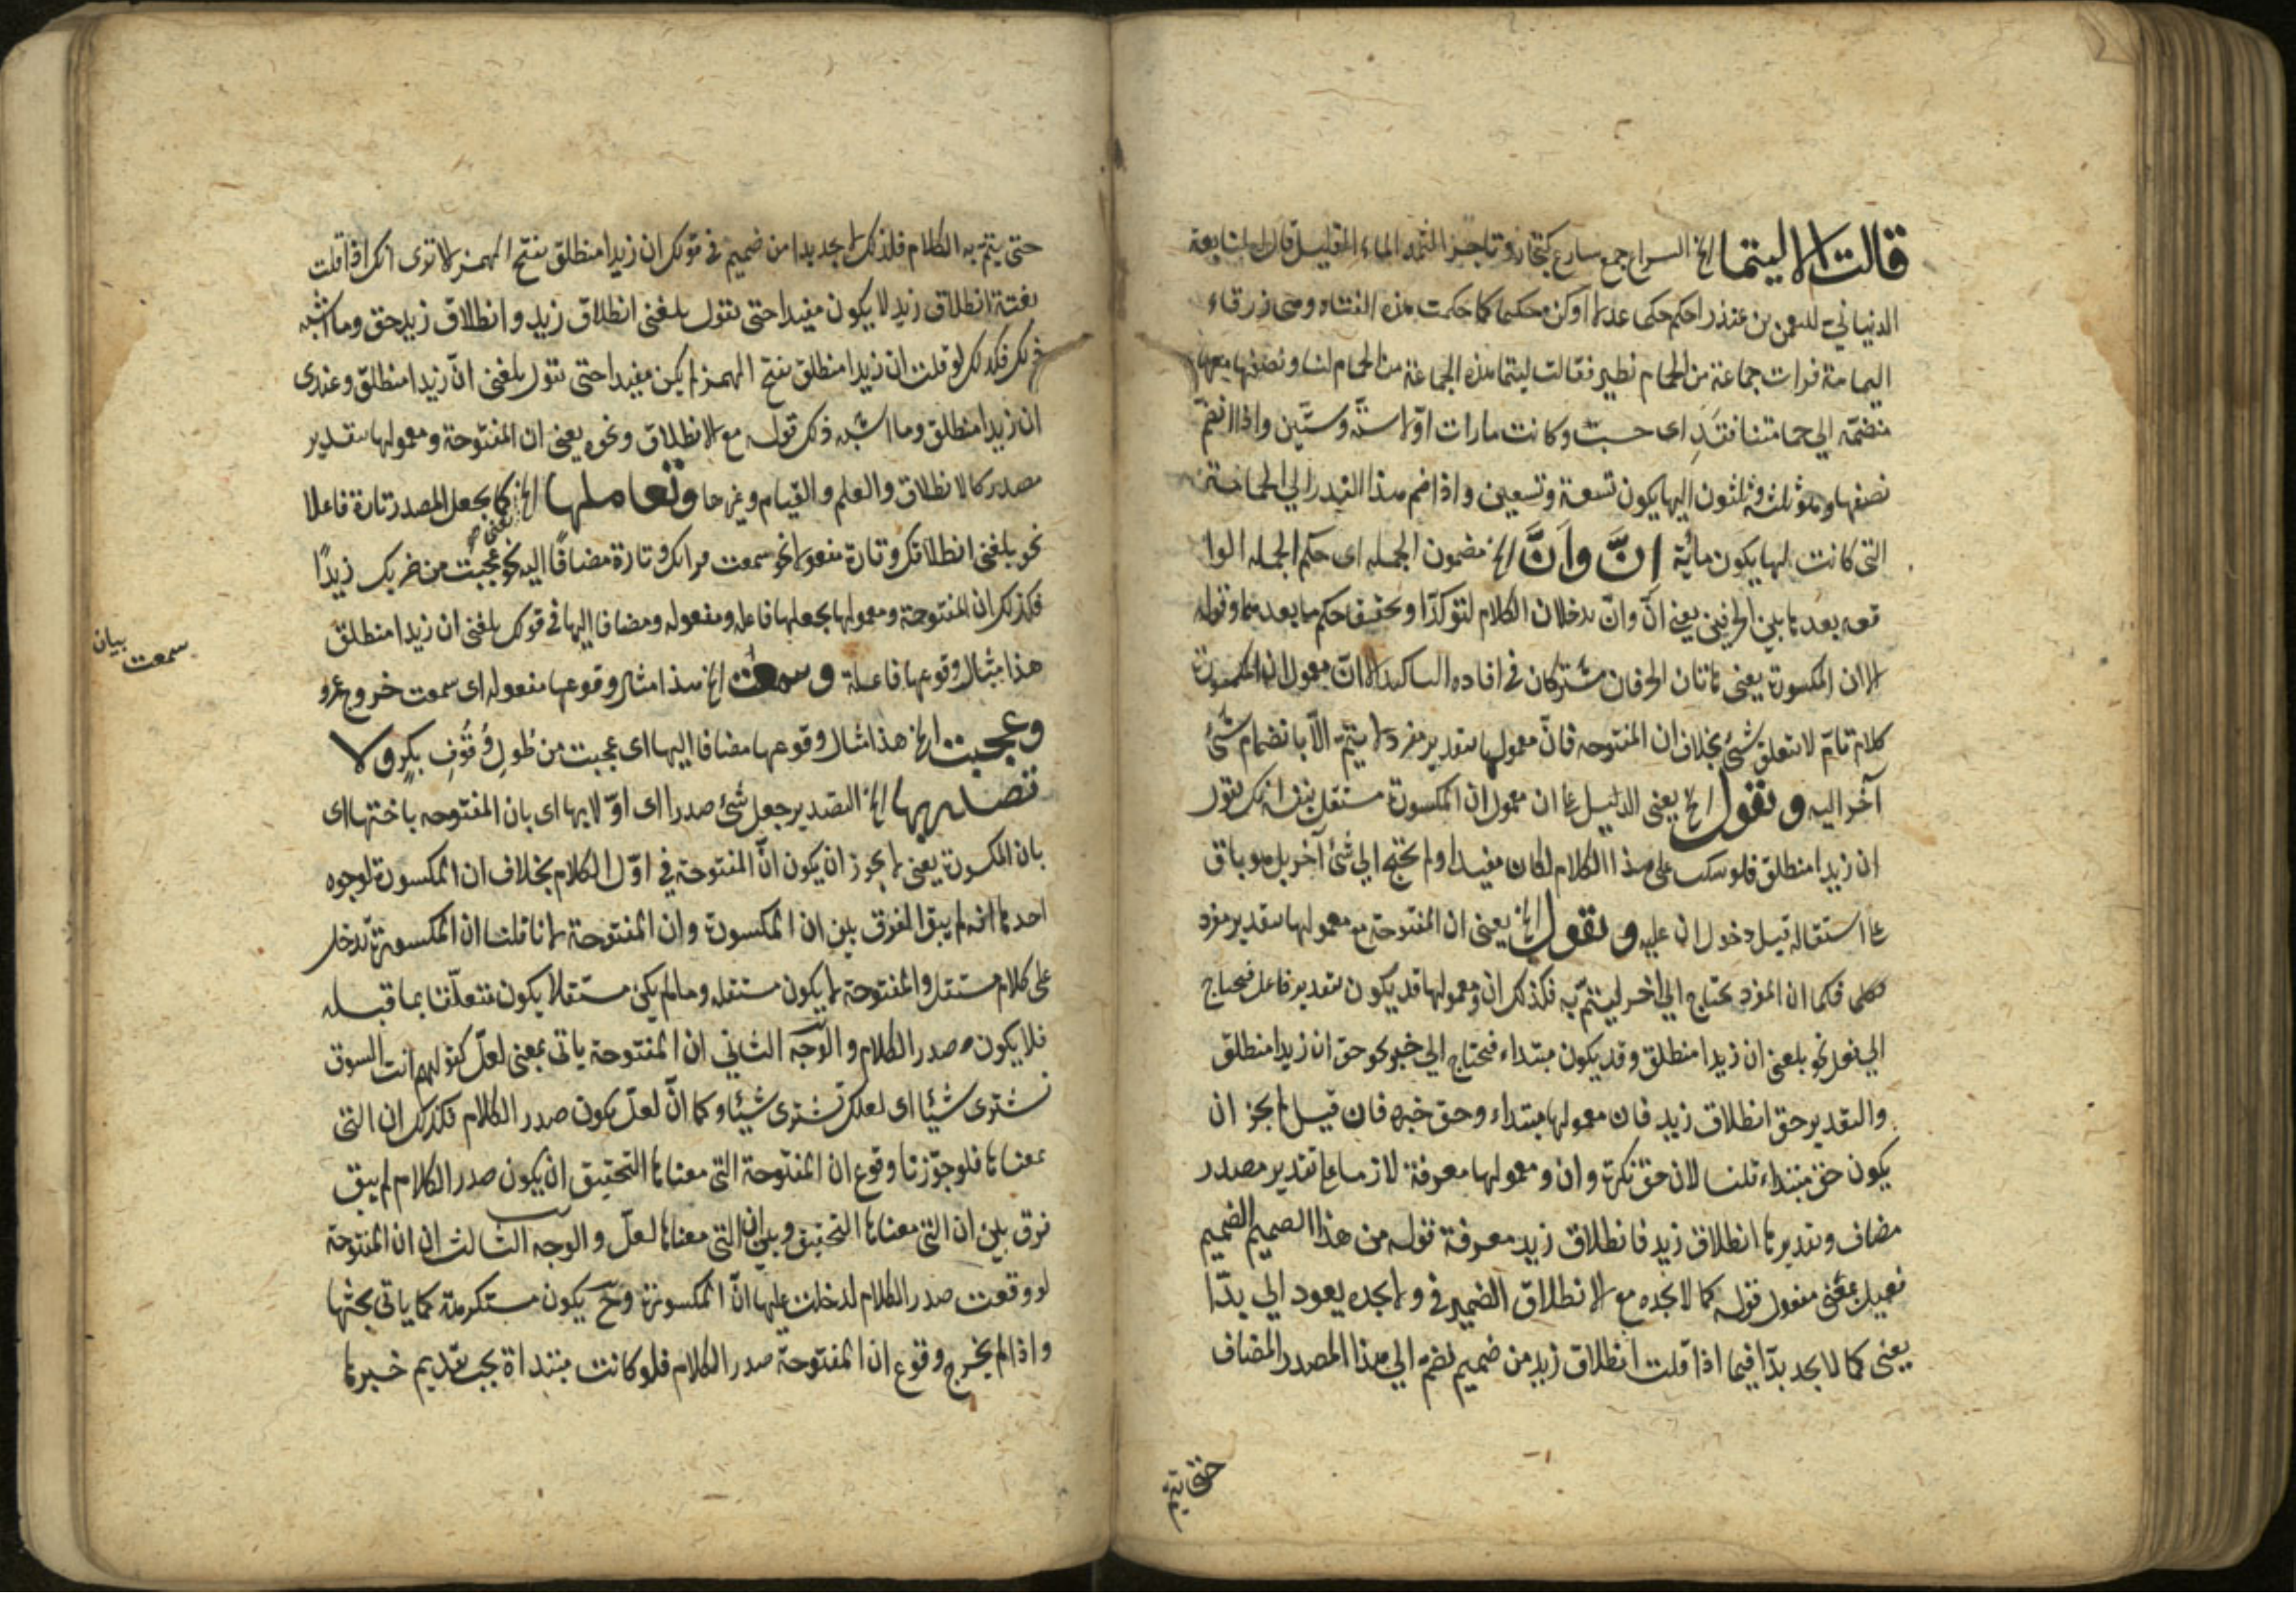 قالت الا ليتما الخ السراع جمع سارع كتجار وتاجر الثمد الماء القليل قال النابعة
الذبياني للنعمن بن منذر احكم حكما عدلا اوكن محكما كما حكمت هذه الفتاه وهى زرقاء
اليمامة فرات جماعة من الحمام تطير فقالت ليتما هذه الجماعة من الحمام لنا ونصفها معها
منضمة الي حمامتنا فقد اى حسب وكانت مارات اولا ستة وستين واذا انضم
نصفها وهو ثلثة وثلثون اليها يكون تسعة وتسعين واذا ضم هذا القدر الي الحمامة
التى كانت لها يكون مأية اِنَّ واَنَّ الخ مضمون الجمله اى حكم الجمله الوا
قعه بعدهما بين الحرفين يعنى انّ وانّ يدخلان الكلام لتوكدا وتحقيقا حكم ما بعدهما وقوله
الا ان المكسورة يعنى هاتان الحرفان مشتركان في افاده التاكيد الا انّ معمول ان المكسورة
كلام تامّ لا تتعلق بشئ بخلاف ان المفتوحه فانّ معمولها بتقدير مفرد لا يتمّ الاّ بانضمام شئ
آخر اليه وتقول الخ يعنى الدليل على ان معمول ان المكسورة مستقل بنفسه انك تقول
ان زيدا منطلق فلو سكت على هذا الكلام لكان مفيدا ولم تحتج الي شئ آخر بل هو باق
على استقلاله قبل دخول ان عليه وتقول الخ يعنى ان المفتوحة مع معمولها بتقدير مفرد
فكما ان المفرد يحتاج الي اخر ليتمّ به فكذلك ان ومعمولها قد يكون بتقدير فاعل فيحتاج
الي فعل نحو بلغنى ان زيدا منطلق وقد يكون مبتداء فيحتاج الي خبر نحو حق ان زيدا منطلق
والتقدير حق انطلاق زيد فان معمولها مبتداء وحق خبره فان قيل لم يجز ان
يكون حق مبتداء قلنا لان حق نكرة وان ومعمولها معرفة لانهما على تقدير مصدر
مضاف وتقديرها انطلاق زيد فانطلاق زيد معرفة قوله من هذا الصميم الضميم
فعيل بمعنى مفعول قوله كما لا تجده مع الانطلاق الضمير في ولا تجده يعود الي بدّا
يعنى كما لا تجد بدّا فيما اذا قلت انطلاق زيد من ضميم تضم الي هذا المصدر المضاف
حتى يتم
حتى يتمّ به الكلام فلذلك لا تجد بدا من ضميم في قولك ان زيدا منطلق بفتح الهمزه الا ترى انك اذا قلت
بغتة انطلاق زيد لا يكون مفيدا حتى تقول بلغنى انطلاق زيد وانطلاق زيد حق وما اشبه
ذلك فكذلك لو قلت ان زيدا منطلق بفتح الهمزه لم يكن مفيدا حتى تقول بلغنى انّ زيدا منطلق وعندى
ان زيدا منطلق وما اشبه ذلك قوله مع الانطلاق ونحوه يعنى ان المفتوحة ومعمولها بتقدير
مصدر كالانطلاق والعلم والقيام وغيرها وتعاملها الخ يعنى كما يجعل المصدر تارة فاعلا
نحو بلغنى انطلاقك وتارة مفعولا نحو سمعت قراءتك وتارة مضافًا اليه نحو عجبت من ضربك زيدًا
فكذلك ان المفتوحة ومعمولها يجعلها فاعله ومفعوله ومضافا اليها في قولك بلغنى ان زيدا منطلق
هذا مثال وقوعها فاعلة وسمعت الخ هذا مثال وقوعها مفعوله اى سمعت خروج عمرو
سمعت بيان
وعجبت الخ هذا مثال وقوعها مضافا اليها اى عجبت من طُولِ وُقُوُفِ بكرٍ ولا
تصدر بها الخ التصدير جعل شئ صدرا اى اوّلا بها اى بان المفتوحه باختها اى
بان المكسورة يعنى لا يجوز ان يكون انّ المفتوحة في اوّل الكلام بخلاف ان المكسورة لوجوه
احدها انه لم يبق الفرق بين ان المكسورة وان المفتوحة لانا قلنا ان المكسورة تدخل
على كلام مستقل والمفتوحة لا يكون مستقله وما لم يكن مستقلا يكون متعلّقا بما قبله
فلا يكون صدر الكلام والوجه الثاني ان المفتوحة ياتى بمعنى لعلّ كقولهم انت السوق
تشترى شيئا اى لعلك تشترى شيئا وكما انّ لعلّ يكون صدر الكلام فكذلك ان التى
بمعناها فلو جوّزنا وقوع ان المفتوحة التى معناها التحقيق ان يكون صدر الكلام لم يبق
فرق بين ان التى معناها التحقيق وبين ان التى معناها لعلّ والوجه الثالث ان ان المفتوحة
لو وقعت صدر الكلام لدخلت عليها انّ المكسورة وحّ يكون مستكرهة كما ياتى بحثها
واذا لم يخرج وقوع ان المفتوحة صدر الكلام فلو كانت مبتداة يجب تقديم خبرها